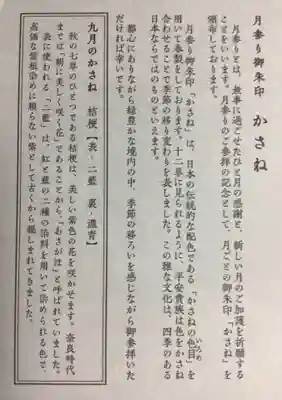 月参り御朱印 かさね
月参りとは、無事に過ごせたひと月の感謝と、新しい月のご加護を祈願する
ことをいいます。月参りのご参拝の記念として、月ごとの御朱印「かさね」を
頒布しております。
月参り御朱印「かさね」は、日本の伝統的な配色である「かさねの色目」を
いろめ
用いて奉製をしております。十二単に見られるように、平安貴族は色をかさね
合わせることで季節の移り変わりを表しました。この雅な文化は、四季のある
日本ならではのものといえます。
都心にありながら緑豊かな境内の中、季節の移ろいを感じながら御参拝いた
だければ幸いです。
九月のかさね 桔梗【表・二藍 裏・濃青】
秋の七草のひとつである桔梗は、美しい紫色の花を咲かせます。奈良時代
までは「朝に美しく咲く花」であることから、「あさがほ」と呼ばれていました。
表に使われる「二藍」は、紅と藍の二種の染料を用いて染められる色で、
高価な紫根染めに頼らない紫として古くから親しまれてきました。